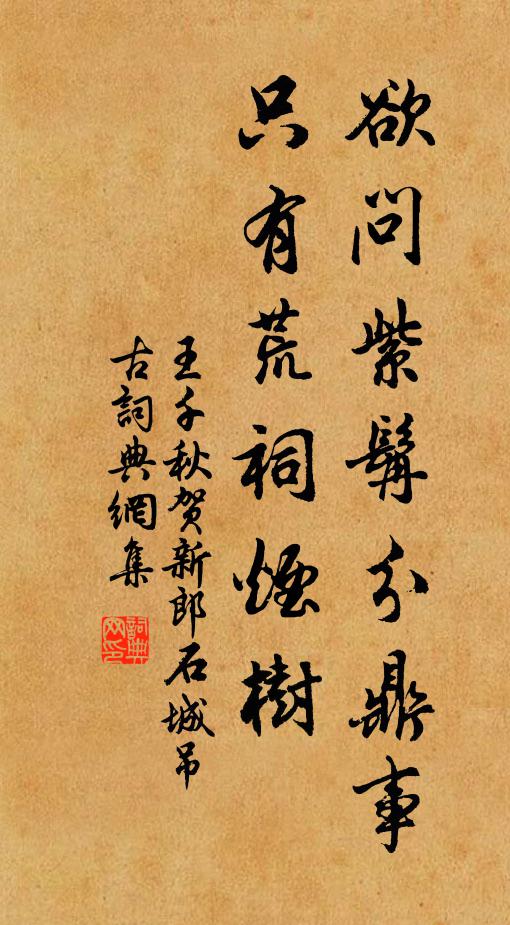 欲問紫髯分鼎事
只有荒祠煙樹
王千秋贺新郎石城吊
古詞典網集
詞典网印